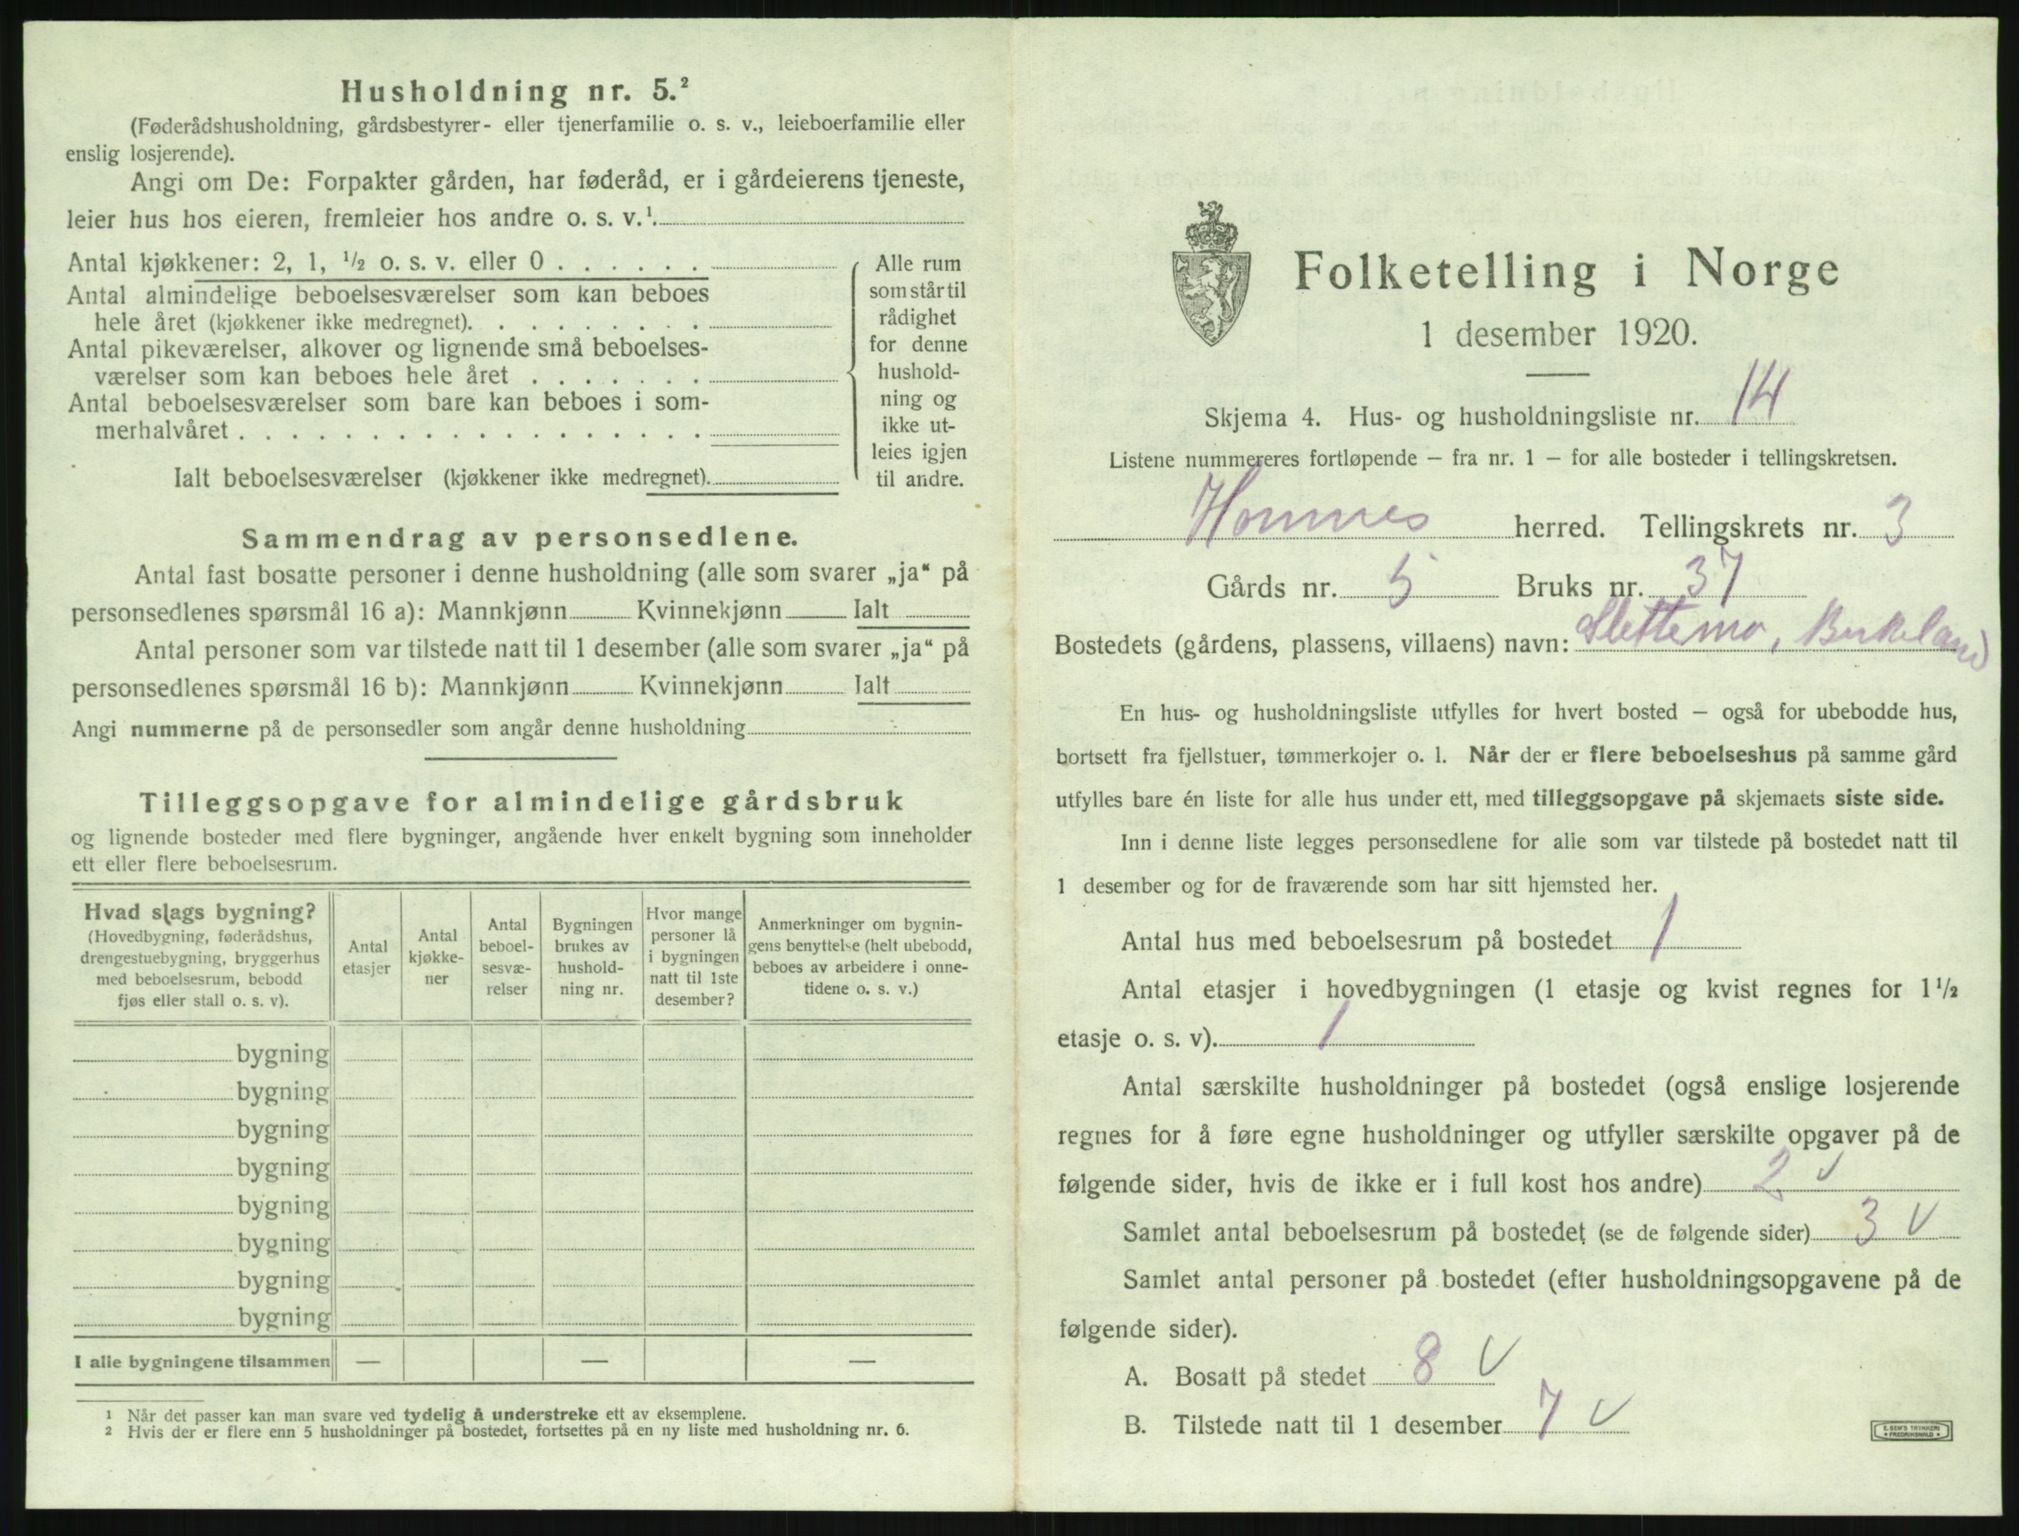 Husholdning nr. 5.²
(Føderådshusholdning, gårdsbestyrer- eller tjenerfamilie o. s. v., leieboerfamilie eller
enslig losjerende).
Angi om De: Forpakter gården, har føderåd, er i gårdeierens tjeneste,
leier hus hos eieren, fremleier hos andre o. s. v.¹
Antal kjøkkener: 2, 1, ½ o. s. v. eller 0 . . . . . .
Antal almindelige beboelsesværelser som kan beboes
hele året (kjøkkener ikke medregnet). . . . . . . . .
Antal pikeværelser, alkover og lignende små beboelses-
værelser som kan beboes hele året . . . . . . .
Antal beboelsesværelser som bare kan beboes i som-
merhalvåret . . . . . . . . . . . . . . . . . .
Ialt beboelsesværelser (kjøkkener ikke medregnet).
Alle rum
som står til
rådighet
for denne
hushold-
ning og
ikke ut-
leies igjen
til andre.
Sammendrag av personsedlene.
Antal fast bosatte personer i denne husholdning (alle som svarer „ja“ på
personsedlenes spørsmål 16 a): Mannkjønn Kvinnekjønn Ialt
Antal personer som var tilstede natt til 1 desember (alle som svarer „ja“ på
personsedlenes spørsmål 16 b): Mannkjønn Kvinnekjønn Ialt
Angi nummerne på de personsedler som angår denne husholdning
Tilleggsopgave for almindelige gårdsbruk
og lignende bosteder med flere bygninger, angående hver enkelt bygning som inneholder
ett eller flere beboelsesrum.
Hvad slags bygning?
(Hovedbygning, føderådshus,
drengestuebygning, bryggerhus
med beboelsesrum, bebodd
fjøs eller stall o. s. v).
Antal
etasjer
Antal
kjøkke-
ner
Antal
beboel-
sesvæ-
relser
Bygningen
brukes av
hushold-
ning nr.
Hvor mange
personer lå
i bygningen
natt til 1ste
desember?
Anmerkninger om bygnin-
gens benyttelse (helt ubebodd,
beboes av arbeidere i onne-
tidene o. s. v.)
bygning
bygning
bygning
bygning
bygning
bygning
bygning
bygning
I alle bygningene tilsammen — — —
¹ Når det passer kan man svare ved tydelig å understreke ett av eksemplene.
² Hvis der er flere enn 5 husholdninger på bostedet, fortsettes på en ny liste med husholdning nr. 6.
Folketelling i Norge
1 desember 1920.
Skjema 4. Hus- og husholdningsliste nr. 14
Listene nummereres fortløpende – fra nr. 1 – for alle bosteder i tellingskretsen.
Hommes herred. Tellingskrets nr. 3
Gårds nr. 5 Bruks nr. 37
Bostedets (gårdens, plassens, villaens) navn: Slettemo, Birkeland
En hus- og husholdningsliste utfylles for hvert bosted – også for ubebodde hus,
bortsett fra fjellstuer, tømmerkojer o. l. Når der er flere beboelseshus på samme gård
utfylles bare én liste for alle hus under ett, med tilleggsopgave på skjemaets siste side.
Inn i denne liste legges personsedlene for alle som var tilstede på bostedet natt til
1 desember og for de fraværende som har sitt hjemsted her.
Antal hus med beboelsesrum på bostedet 1
Antal etasjer i hovedbygningen (1 etasje og kvist regnes for 1½
etasje o. s. v). 1
Antal særskilte husholdninger på bostedet (også enslige losjerende
regnes for å føre egne husholdninger og utfyller særskilte opgaver på de
følgende sider, hvis de ikke er i full kost hos andre) 2 v
Samlet antal beboelsesrum på bostedet (se de følgende sider) 3 v
Samlet antal personer på bostedet (efter husholdningsopgavene på de
følgende sider).
A. Bosatt på stedet 8 v
B. Tilstede natt til 1 desember 7 v